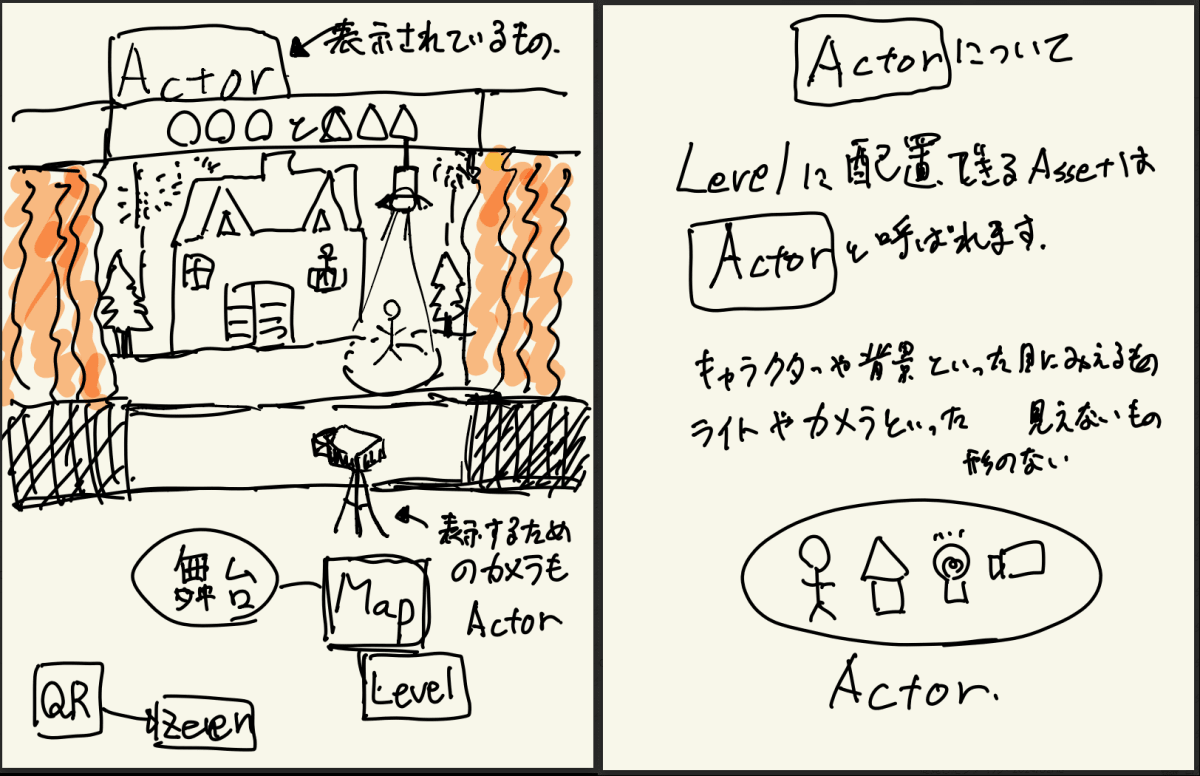 Actor
表示されているもの.
○○○と△△△
表示するため
のカメラも
Actor
舞台
Map
Level
QR
Actorについて
Levelに配置できるAssetは
Actorと呼ばれます.
キャラクターや背景といった目にみえるもの
ライトやカメラといった 見えないもの
形のない
Actor.